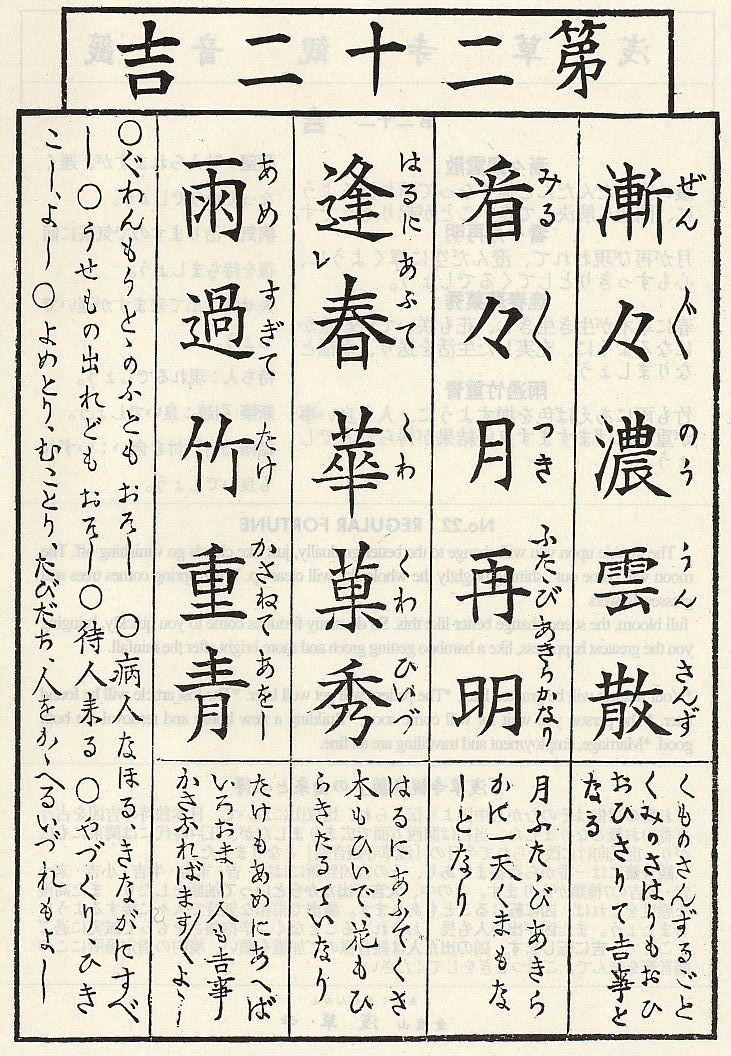 第二十二吉
漸々濃雲散
ぜん〲のううんさんず
くものさんずるごと
くみのさはりもおひ
おひさりて吉事と
なる
看々月再明
みる〱つきふたびあきらかなり
月ふたゝびあきら
かに天くまもな
しとなり
逢レ春華菓秀
はるにあふてくわくわひいづ
はるにあふてくさ
木もひいで、花もひ
らきたるていなり
雨過竹重青
あめすぎてたけかさねてあをし
たけもあめにあへば
いろおまし人も吉事
かさなればます〱よし
〇ぐわんもうとゝのふともおそし 〇病人なほるきながにすべ
し 〇うせもの出れどもおそし 〇待人来る 〇やづくりひき
こし、よし 〇よめとり、むことり、たびだち、人をかゝへるいづれもよし